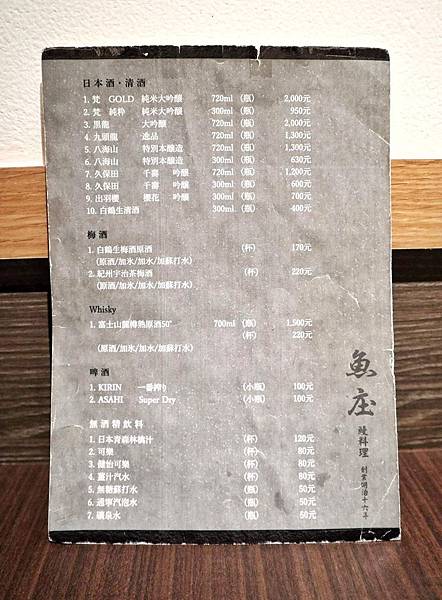 日本酒・清酒
1. 梵 GOLD 純米大吟釀 720ml (瓶) 2,000元
2. 梵 純粋 純米大吟釀 300ml (瓶) 950元
3. 黑龍 大吟釀 720ml (瓶) 2,000元
4. 九頭龍 逸品 720ml (瓶) 1,300元
5. 八海山 特別本釀造 720ml (瓶) 1,300元
6. 八海山 特別本釀造 300ml (瓶) 630元
7. 久保田 千壽 吟釀 720ml (瓶) 1,200元
8. 久保田 千壽 吟釀 300ml (瓶) 600元
9. 出羽櫻 櫻花 吟釀 300ml (瓶) 700元
10. 白鶴生清酒 300ml (瓶) 400元
梅酒
1. 白鶴生梅酒原酒 (杯) 170元
(原酒/加氷/加水/加蘇打水)
2. 紀州宇治茶梅酒 (杯) 220元
(原酒/加氷/加水/加蘇打水)
Whisky
1. 富士山麓樽熟原酒50° 700ml (瓶) 1,500元
(杯) 220元
(原酒/加氷/加水/加蘇打水)
啤酒
1. KIRIN 一番搾り (小瓶) 100元
2. ASAHI Super Dry (小瓶) 100元
無酒精飲料
1. 日本青森林檎汁 (杯) 120元
2. 可樂 (杯) 80元
3. 健怡可樂 (杯) 80元
4. 薑汁汽水 (杯) 80元
5. 無糖蘇打水 (瓶) 50元
6. 通寧汽泡水 (瓶) 50元
7. 礦泉水 (瓶) 50元
魚庄
鰻料理
創業明治十六年